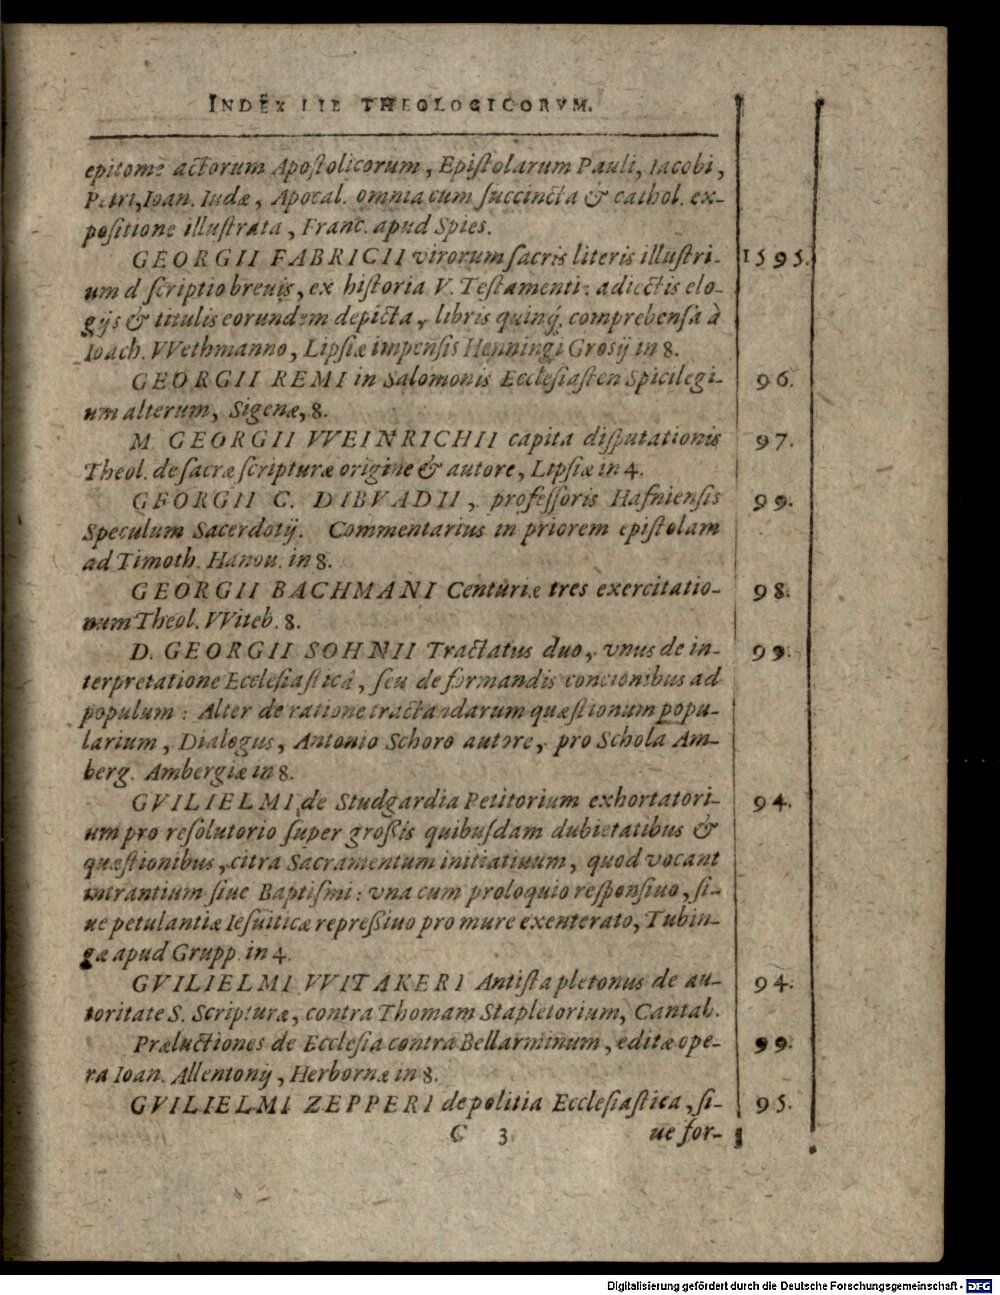 INDEX LIB THEOLOGICORVM.
epitome actorum Apostolicorum, Epistolarum Pauli, Iacobi,
Petri, Ioan. Iudæ, Apocal. omnia cum succincta & cathol. ex-
positione illustrata, Franc. apud Spies.
GEORGII FABRICII virorum sacris literis illustri- 1595.
um descriptio breuis, ex historia V. Testamenti: adiectis elo-
gijs & titulis eorundem depicta, libris quinq; comprehensa à
Ioach. VVethmanno, Lipsiæ impensis Henningi Grosij in 8.
GEORGII REMI in Salomonis Ecclesiasten Spicilegi- 96.
um alterum, Sigenæ, 8.
M. GEORGII VVEINRICHII capita disputationis 97.
Theol. de sacræ scripturæ origine & autore, Lipsiæ in 4.
GEORGII C. DIBVADII, professoris Hafniensis 99.
Speculum Sacerdotij. Commentarius in priorem epistolam
ad Timoth. Hanou. in 8.
GEORGII BACHMANI Centuriæ tres exercitatio- 98.
num Theol. VViteb. 8.
D. GEORGII SOHNII Tractatus duo, vnus de in- 99.
terpretatione Ecclesiastica, seu de formandis concionibus ad
populum: Alter de ratione tractandarum quæstionum popu-
larium, Dialogus, Antonio Schoro autore, pro Schola Am-
berg. Ambergiæ in 8.
GVILIELMI de Studgardia Petitorium exhortatori- 94.
um pro resolutorio super grossis quibusdam dubietatibus &
quæstionibus, citra Sacramentum initiatiuum, quod vocant
intrantium siue Baptismi: vna cum proloquio responsiuo, si-
ue petulantiæ Iesuiticæ repressiuo pro mure exenterato, Tubin-
gæ apud Grupp. in 4.
GVILIELMI VVITAKERI Antistapletonus de au- 94.
toritate S. Scripturæ, contra Thomam Stapletorium, Cantab.
Præluctiones de Ecclesia contra Bellarminum, editæ ope- 99.
ra Ioan. Allentonij, Herbornæ in 8.
GVILIELMI ZEPPERI de politia Ecclesiastica, si- 95.
C 3 ue for-
Digitalisierung gefördert durch die Deutsche Forschungsgemeinschaft - DFG